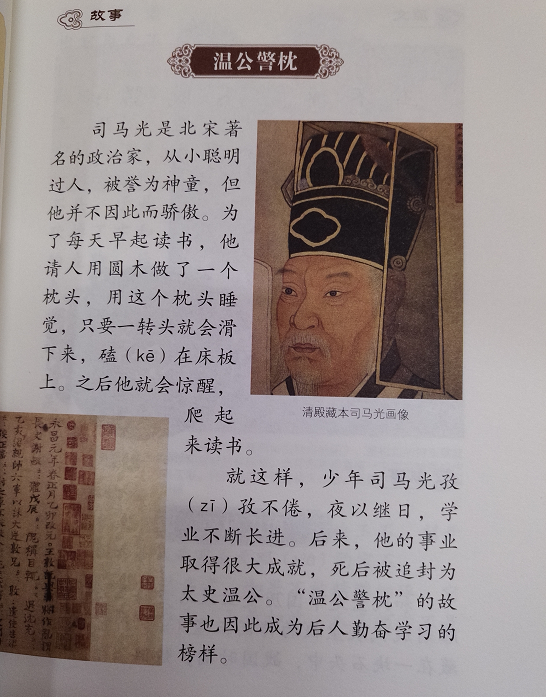 故事
温公警枕
司马光是北宋著
名的政治家，从小聪明
过人，被誉为神童，但
他并不因此而骄傲。为
了每天早起读书，他
请人用圆木做了一个
枕头，用这个枕头睡
觉，只要一转头就会滑
下来，磕（kē）在床板
上。之后他就会惊醒，
爬起
来读书。
清殿藏本司马光画像
就这样，少年司马光孜
（zī）孜不倦，夜以继日，学
业不断长进。后来，他的事业
取得很大成就，死后被追封为
太史温公。“温公警枕”的故
事也因此成为后人勤奋学习的
榜样。